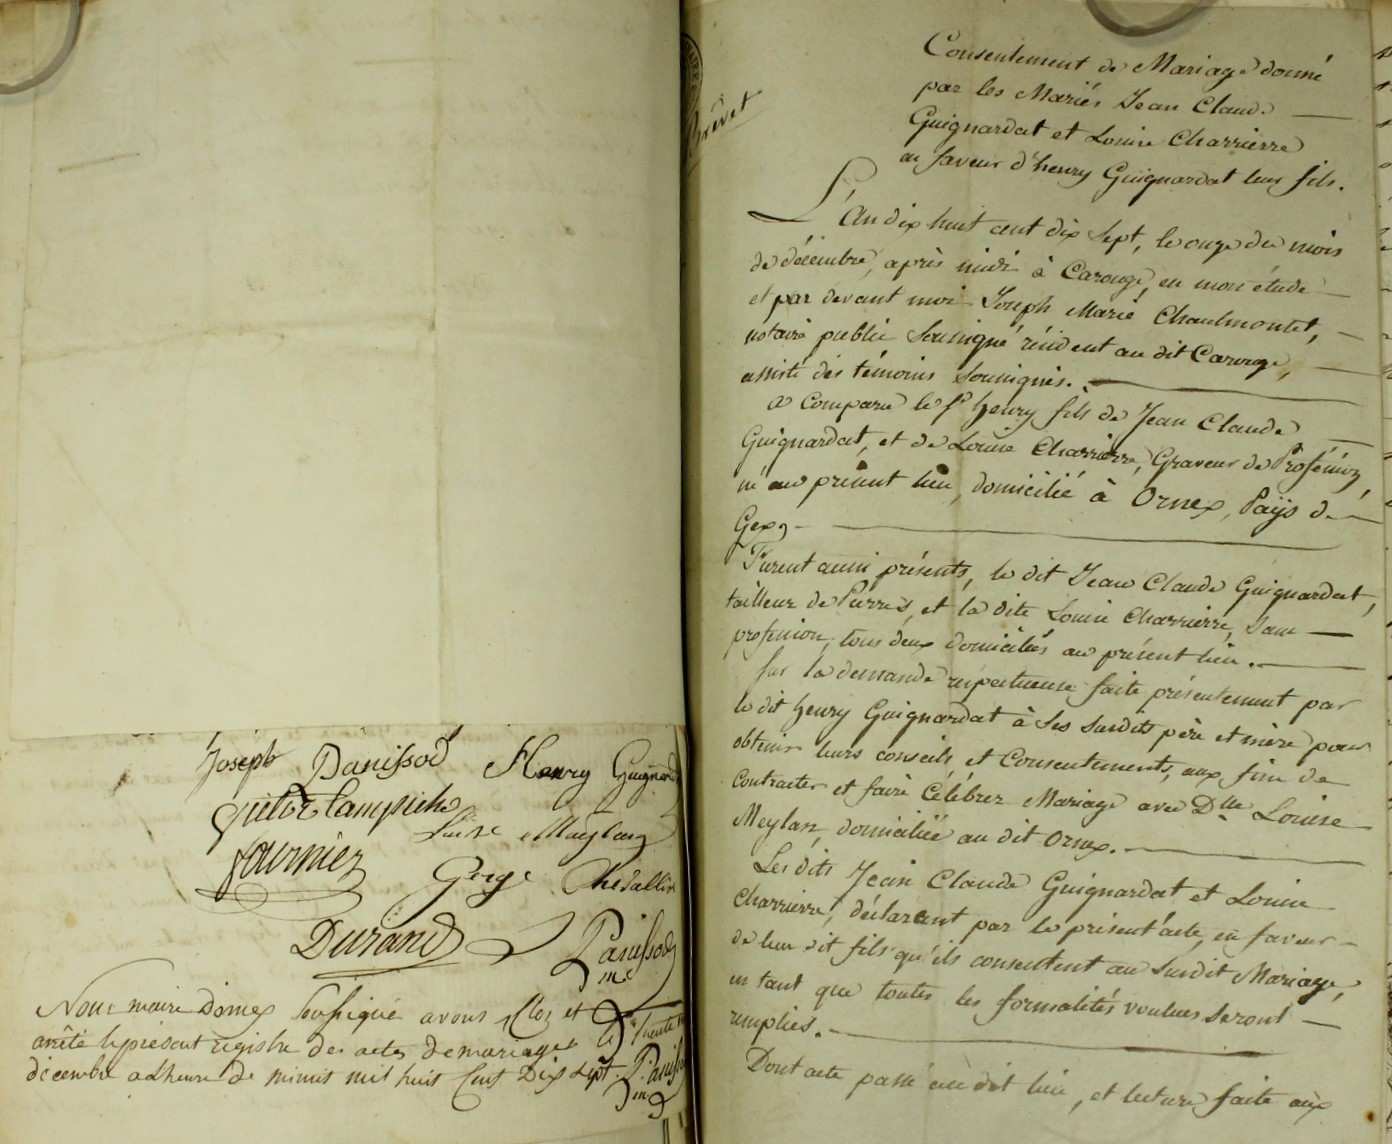 Joseph Danissod Henry Guignard
Victor Lampsicho
Luise Maylang
fournier George Chevallier
Durand Panissod
me
Nous maire d'ornex Soussigné avons Clos et
arrêté le présent registre des actes de mariages le Trente
décembre a l'heure de minuit mil huit Cent Dix sept. Paniss
me
Brevet
Consentement de Mariage donné
par les Mariés Jean Claude
Guignardat et Louise Charrierre
en faveur d'henry Guignardat leur fils.
L'An dix huit cent dix Sept, le onze du mois
de décembre, après midi à Carouge, en mon étude
et par devant moi Joseph Marie Chaulmontet,
notaire public Soussigné résident au dit Carouge,
assisté des témoins Soussignés.
a Comparu le Sr henry fils de Jean Claude
Guignardat, et de Louise Charrierre, Graveur de Proféssion,
né au présent lieu, domicilié à Ornex, Païs de
Gex,
Furent aussi présents, le dit Jean Claude Guignardat,
tailleur de Pierres, et la dite Louise Charrierre, Sans
profession, tous deux domiciliés au présent lieu.
Sur la demande respectueuse faite présentement par
le dit henry Guignardat à Ses Susdits père et mère pour
obtenir leurs conseils et Consentements, aux fins de
Contracter et faire Célébrer Mariage avec Dlle Louise
Meylan, domiciliée au dit Ornex.
Les dits Jean Claude Guignardat et Louise
Charrierre, déclarent par le présent acte, en faveur
de leur dit fils qu'ils consentent au Susdit Mariage,
en tant que toutes les formalités voulues Seront
remplies.
Dont acte passé au dit lieu, et lecture faite aux